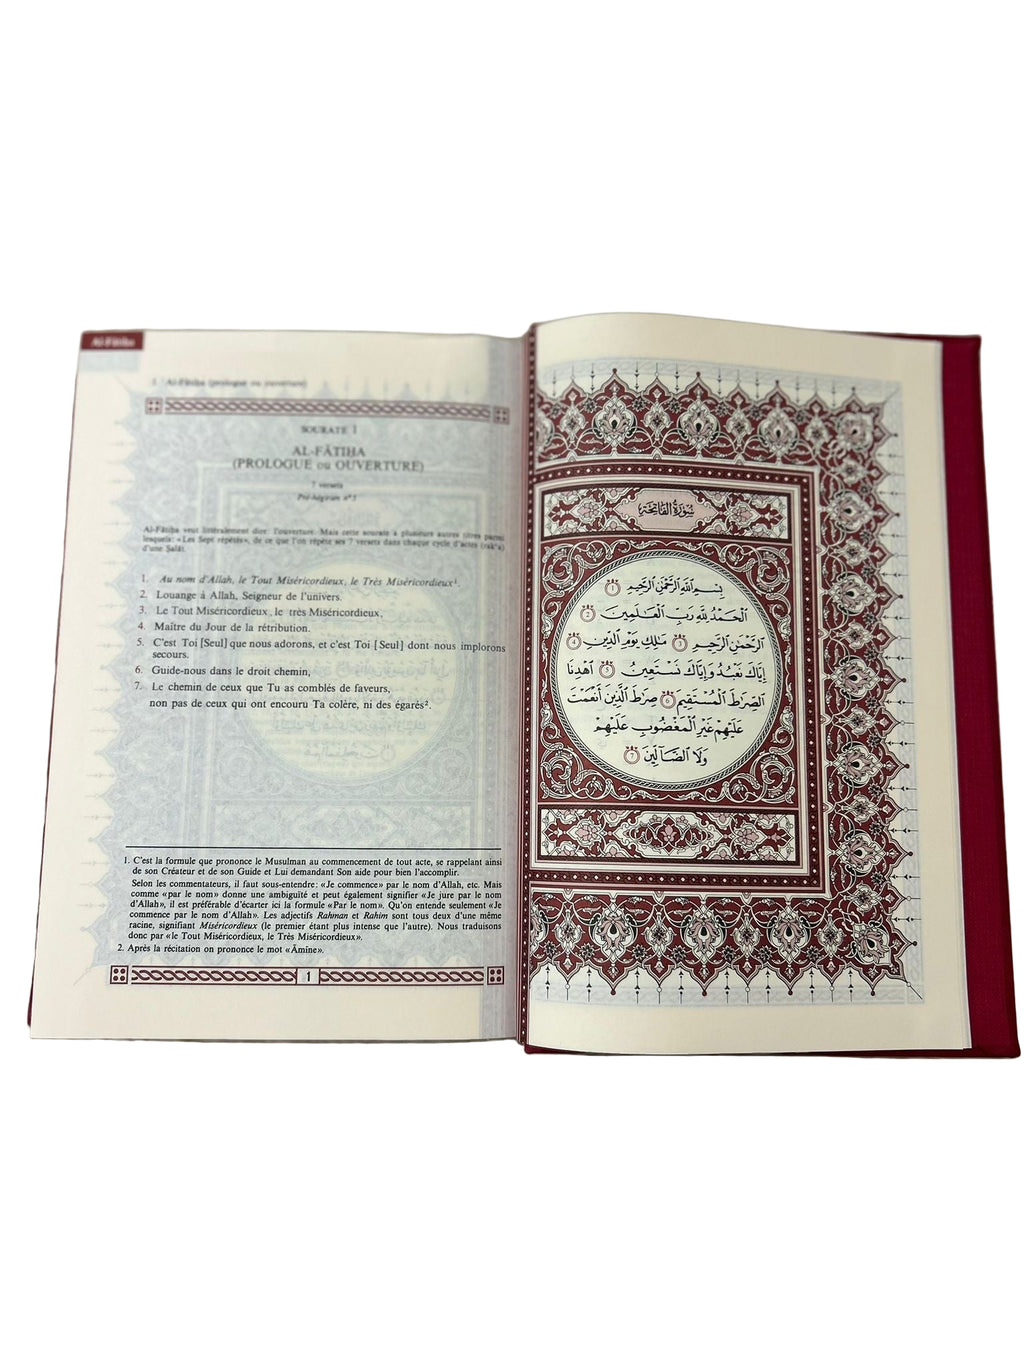 Al-Fātiḥa
1 Al-Fātiḥa (prologue ou ouverture)
SOURATE 1
AL-FĀTIḤA
(PROLOGUE ou OUVERTURE)
7 versets
Pré-hégirien n° 5
Al-Fātiḥa veut littéralement dire: l'ouverture. Mais cette sourate à plusieurs autres titres parmi
lesquels: «Les Sept répétés», de ce que l'on répète ses 7 versets dans chaque cycle d'actes (rak'a)
d'une Ṣalāt.
1. Au nom d'Allah, le Tout Miséricordieux, le Très Miséricordieux¹.
2. Louange à Allah, Seigneur de l'univers.
3. Le Tout Miséricordieux, le très Miséricordieux,
4. Maître du Jour de la rétribution.
5. C'est Toi [Seul] que nous adorons, et c'est Toi [Seul] dont nous implorons
secours.
6. Guide-nous dans le droit chemin,
7. Le chemin de ceux que Tu as comblés de faveurs,
non pas de ceux qui ont encouru Ta colère, ni des égarés².
1. C'est la formule que prononce le Musulman au commencement de tout acte, se rappelant ainsi
de son Créateur et de son Guide et Lui demandant Son aide pour bien l'accomplir.
Selon les commentateurs, il faut sous-entendre: «Je commence» par le nom d'Allah, etc. Mais
comme «par le nom» donne une ambiguïté et peut également signifier «Je jure par le nom
d'Allah», il est préférable d'écarter ici la formule «Par le nom». Qu'on entende seulement «Je
commence par le nom d'Allah». Les adjectifs Rahman et Rahim sont tous deux d'une même
racine, signifiant Miséricordieux (le premier étant plus intense que l'autre). Nous traduisons
donc par «le Tout Miséricordieux, le Très Miséricordieux».
2. Après la récitation on prononce le mot «Āmīne».
1
سُورَةُ الفَاتِحَةِ
بِسْمِ ٱللَّهِ ٱلرَّحْمَٰنِ ٱلرَّحِيمِ ١
ٱلْحَمْدُ لِلَّهِ رَبِّ ٱلْعَٰلَمِينَ ٢
ٱلرَّحْمَٰنِ ٱلرَّحِيمِ ٣ مَٰلِكِ يَوْمِ ٱلدِّينِ ٤
إِيَّاكَ نَعْبُدُ وَإِيَّاكَ نَسْتَعِينُ ٥ ٱهْدِنَا
ٱلصِّرَٰطَ ٱلْمُسْتَقِيمَ ٦ صِرَٰطَ ٱلَّذِينَ أَنْعَمْتَ
عَلَيْهِمْ غَيْرِ ٱلْمَغْضُوبِ عَلَيْهِمْ
وَلَا ٱلضَّآلِّينَ ٧